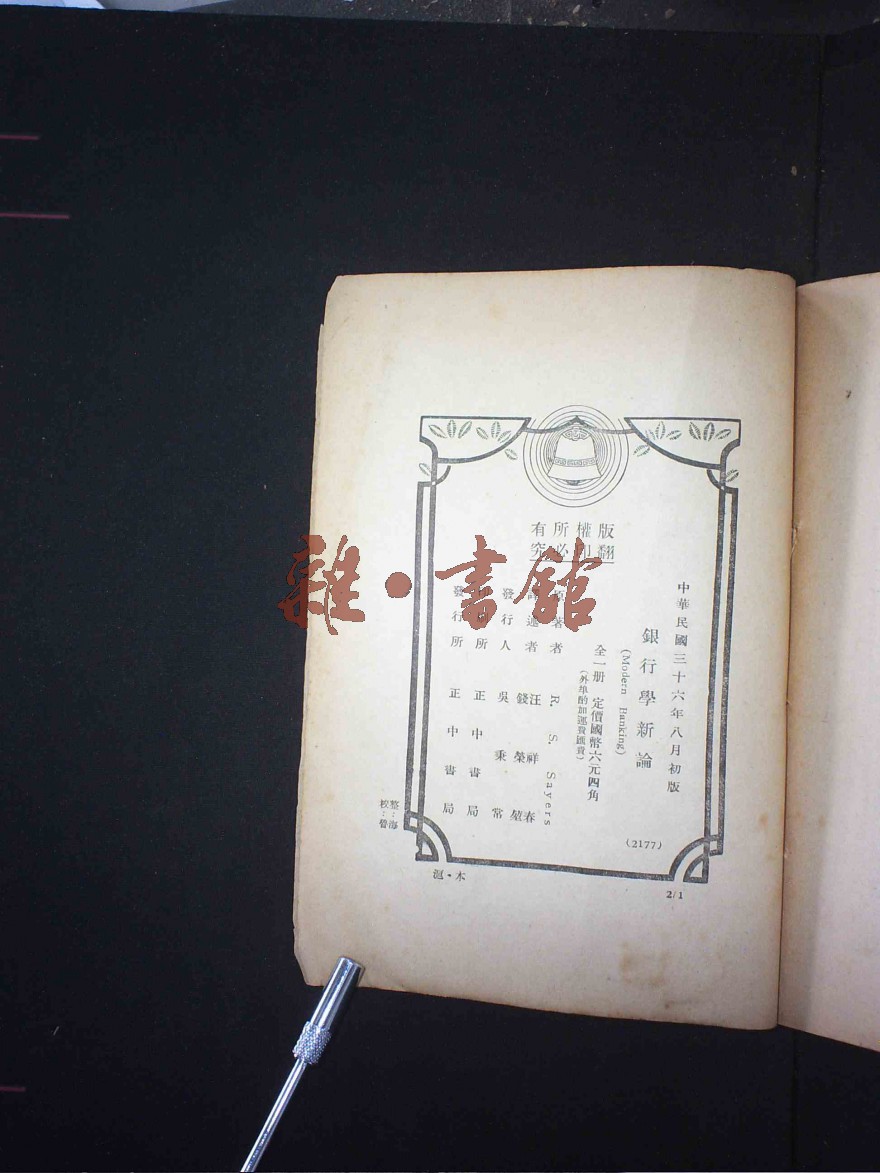 版權所有
翻印必究
中華民國三十六年八月初版
銀行學新論
(Modern Banking)
全一册 定價國幣六元四角
(外埠酌加運費匯費)
原著者 R. S. Sayers
譯述者 汪祥春 錢榮堃
發行人 吳秉常
印刷所 正中書局
發行所 正中書局
(2177)
整:海
校:晉
滬·木
2/1
雜·書館